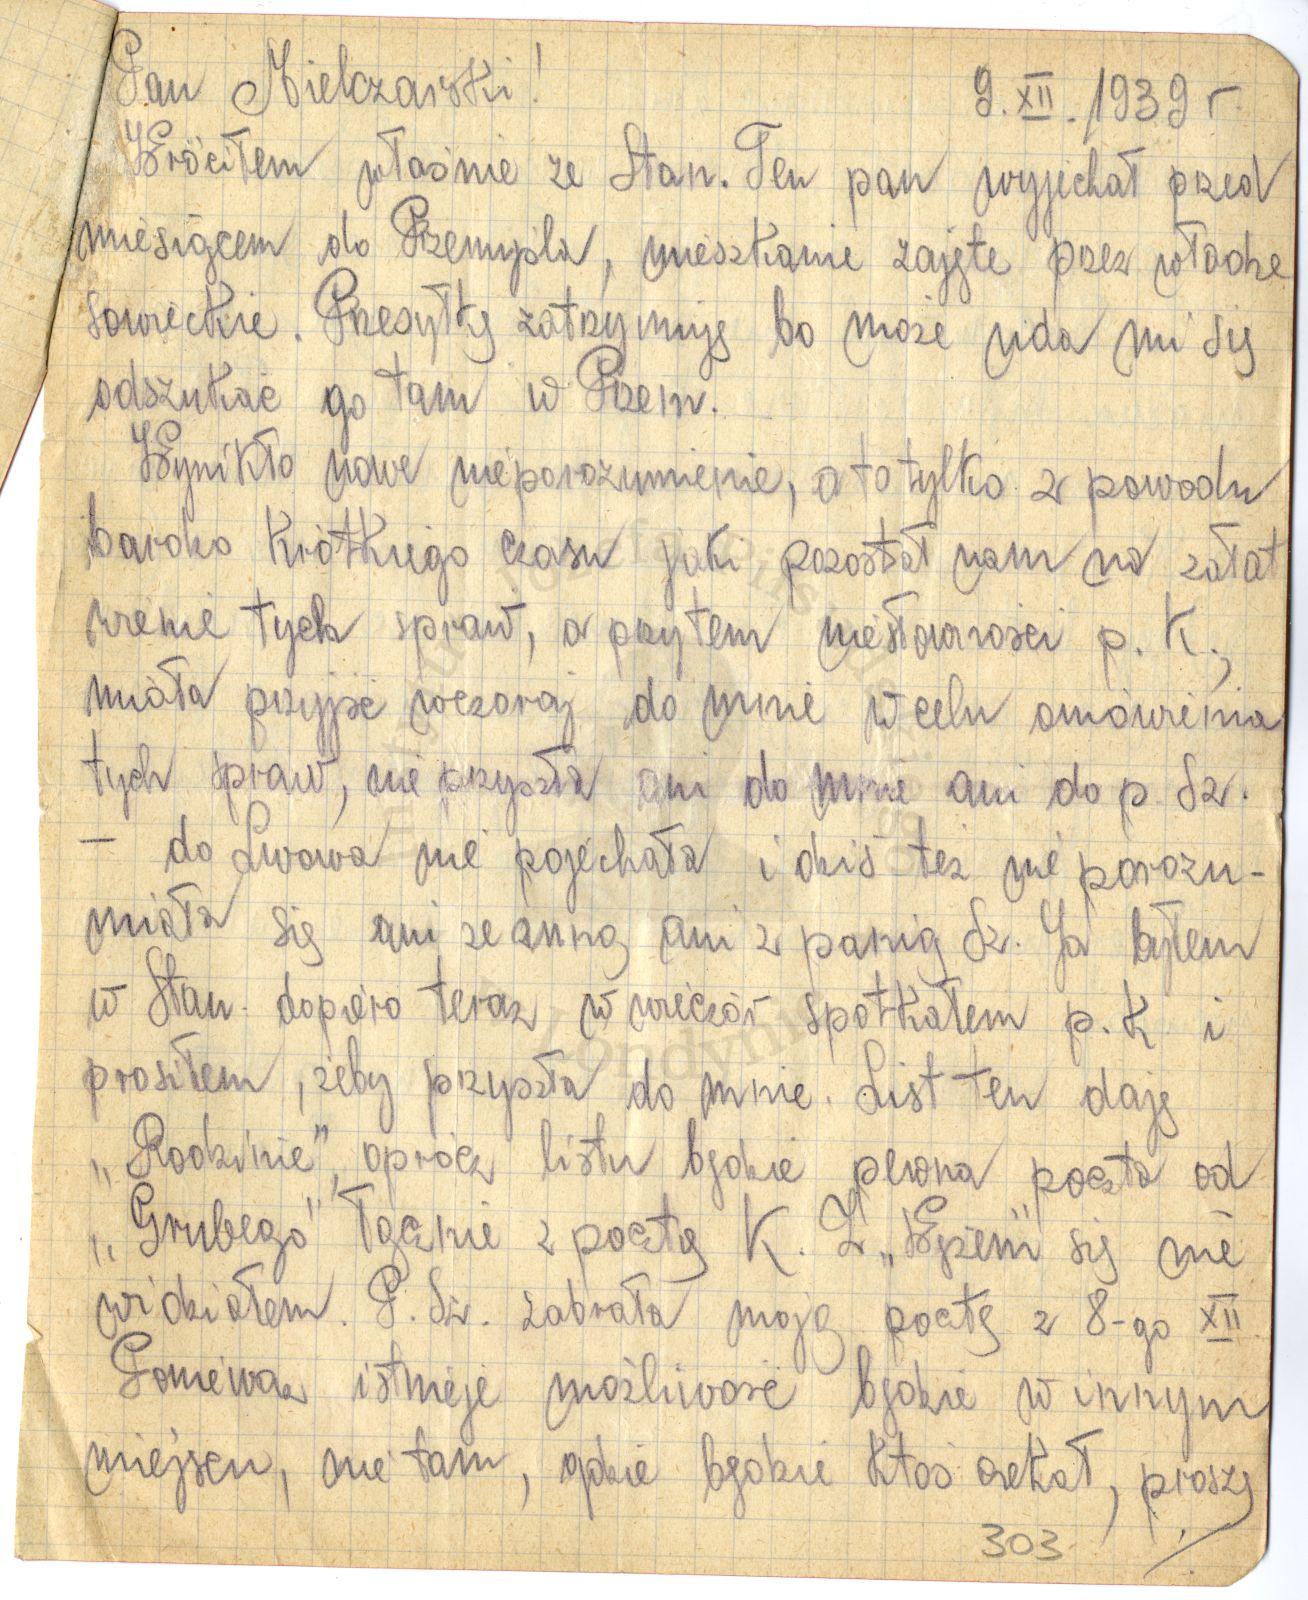 Pan Mielczarski! 9.XII.1939 r
Wróciłem właśnie ze Stan. Ten pan wyjechał przed
miesiącem do Przemyśla, mieszkanie zajęte przez władze
sowieckie. Przesyłkę zatrzymuję bo może uda mi się
odszukać go tam w Przem.
Wynikło nowe nieporozumienie, a to tylko z powodu
bardzo krótkiego czasu jaki pozostał nam na załat
wienie tych spraw, a przytem niesłowności p. K.,
miała przyjść wczoraj do mnie w celu omówienia
tych spraw, nie przyszła ani do mnie ani do p. Sz.
– do Lwowa nie pojechała i dziś też nie porozu-
miała się ani ze mną ani z panią Sz. Ja byłem
w Stan. dopiero teraz w wieczór spotkałem p. K i
prosiłem, żeby przyszła do mnie. List ten daję
„Rodzinie", oprócz listu będzie pewna poczta od
„Grubego" łącznie z pocztą K. Z „Wężem" się nie
widziałem. P. Sz. zabrała moją pocztę z 8-go XII.
Ponieważ istnieje możliwość będzie w innym
miejscu, nie tam, gdzie będzie ktoś czekał, proszę
303 ./.